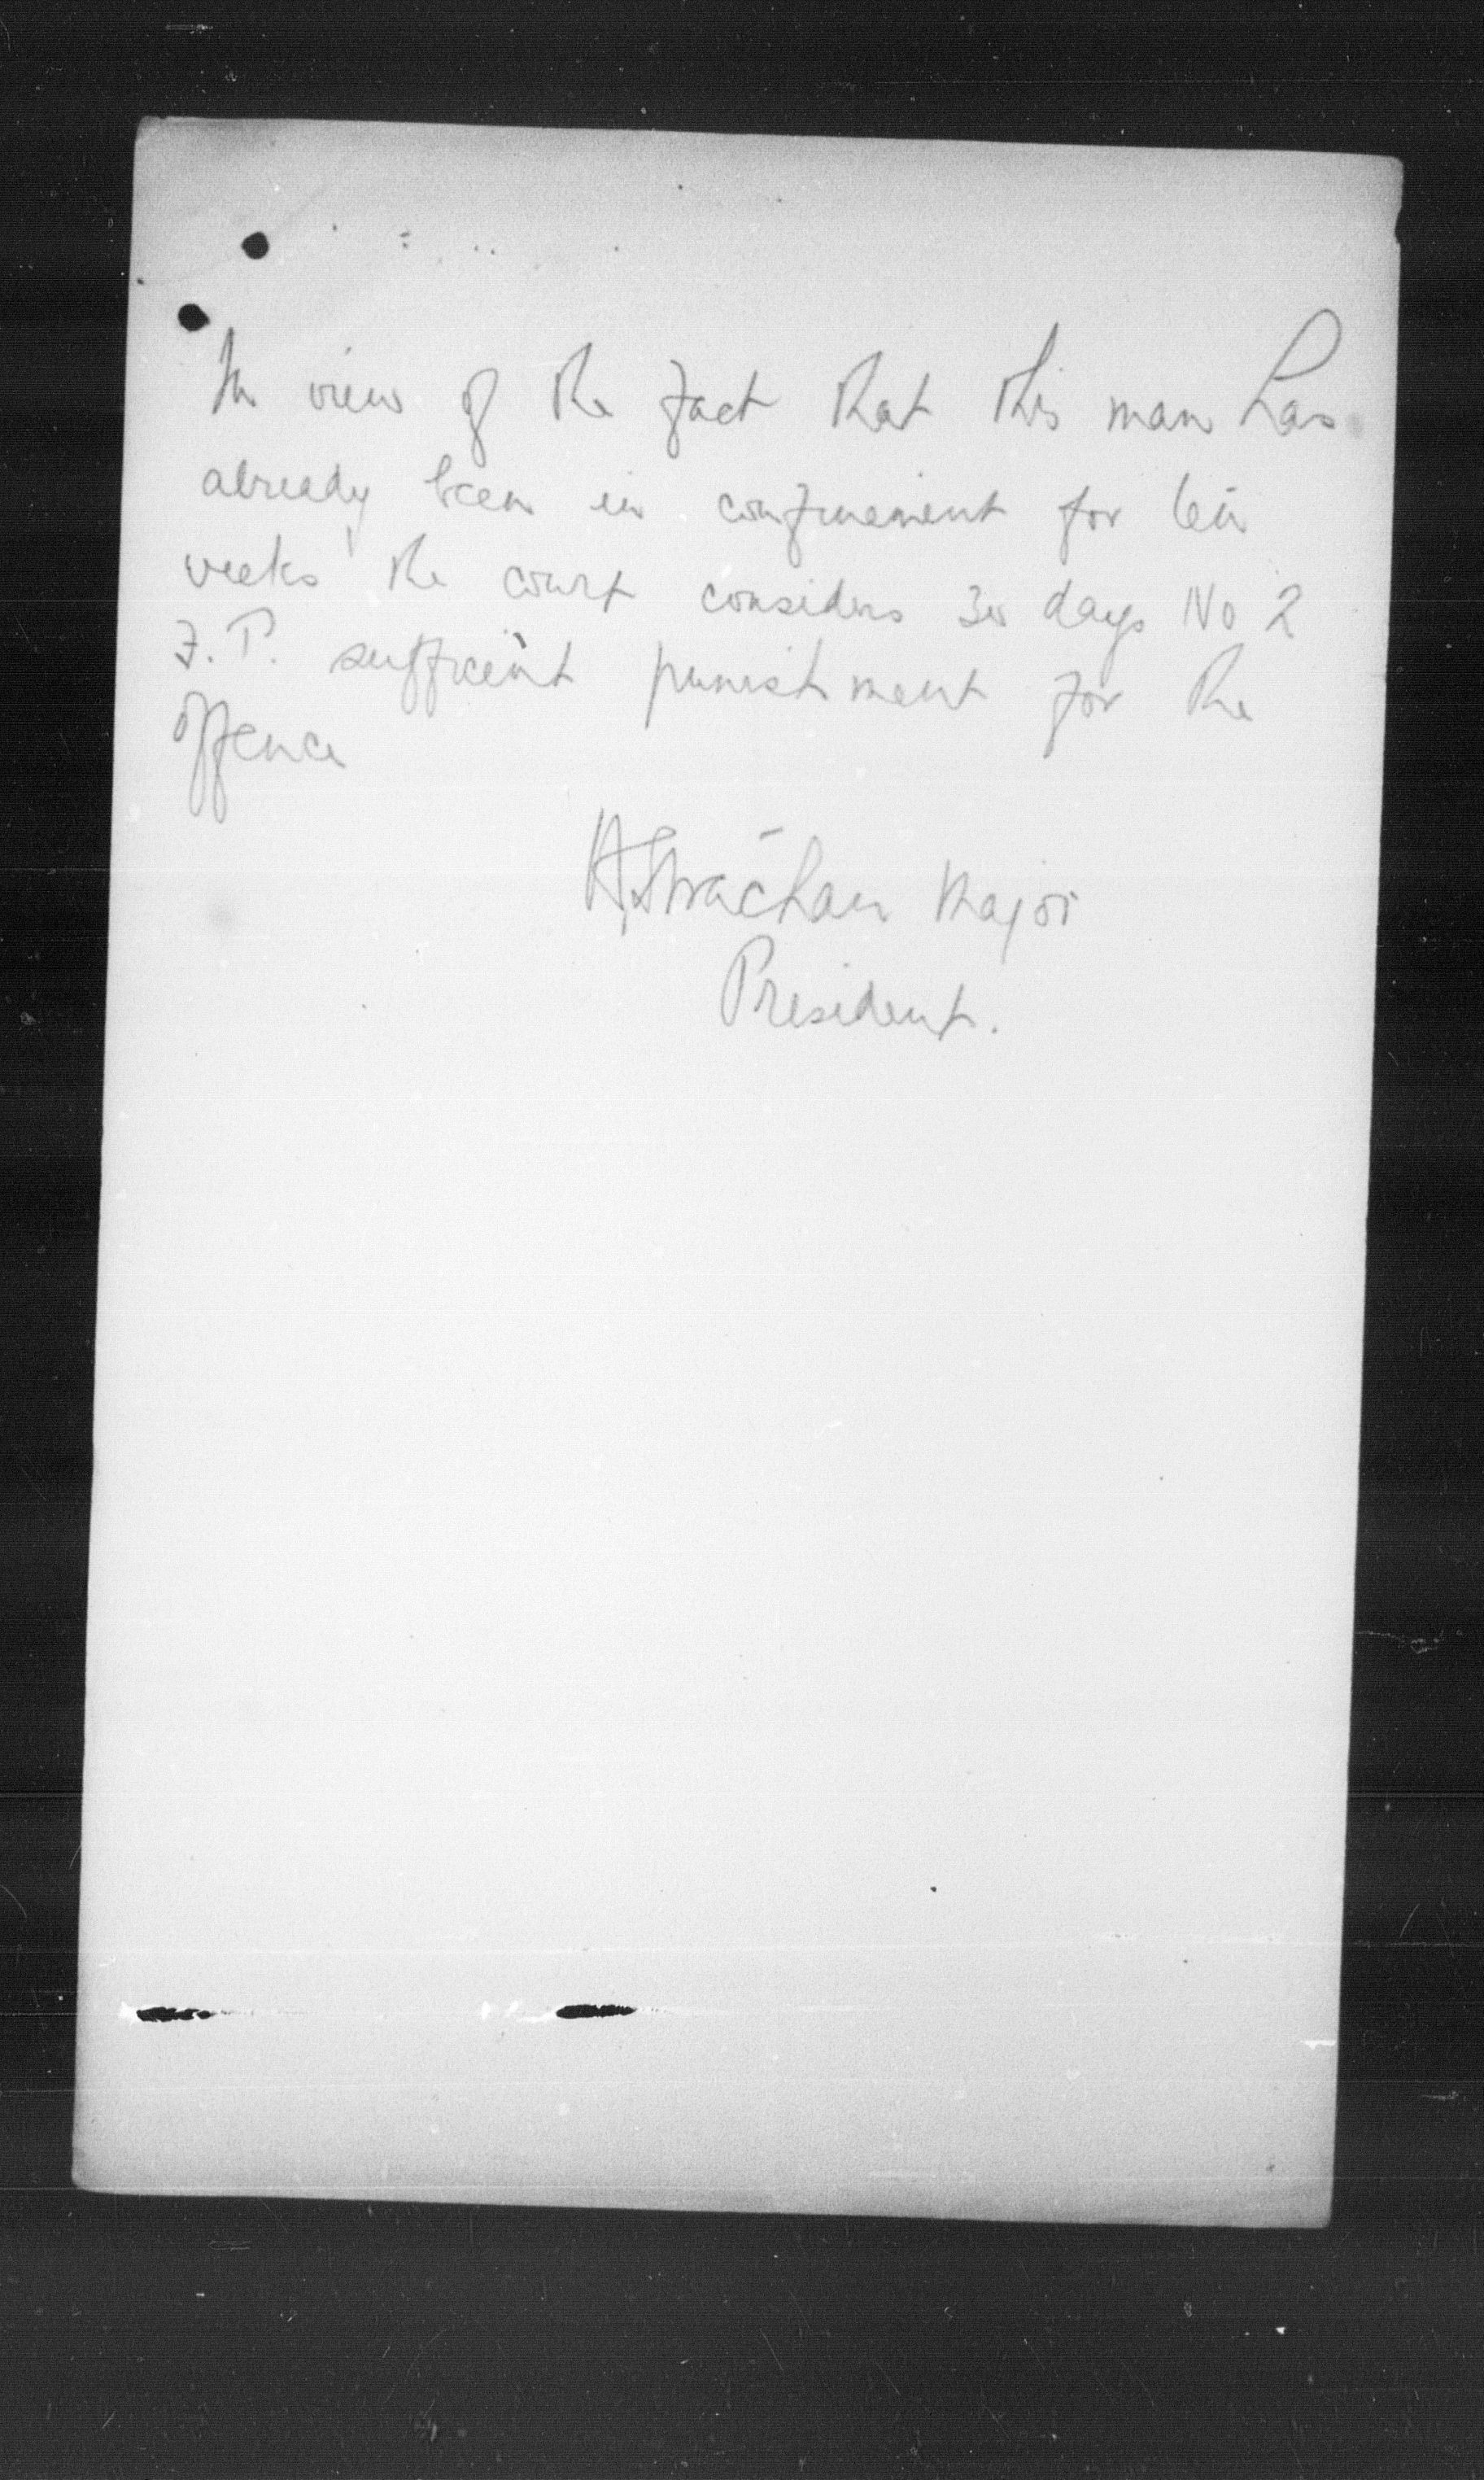 In view of the fact that this man has
already been in confinement for ten
weeks the court considers 30 days No 2
F.P. sufficient punishment for the
offence
H. Strachan Major
President.